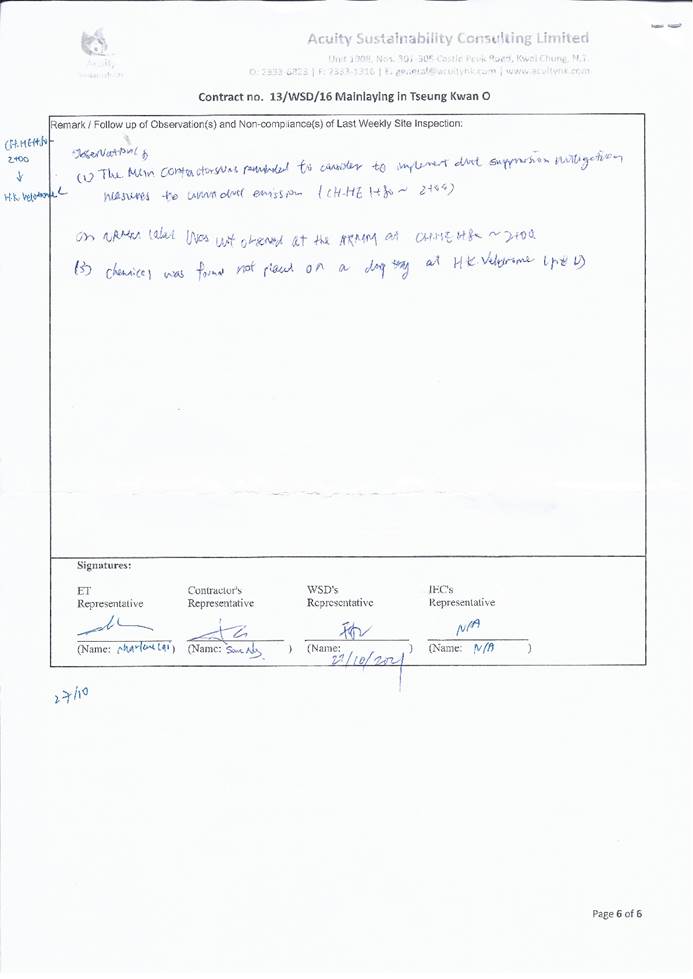 Acuity
Acuity Sustainability Consulting Limited
Unit 1908, Nos. 301-305 Castle Peak Road, Kwai Chung, N.T.
O: 2333-6823 | F: 2333-1316 | E: general@acuityhk.com | www.acuityhk.com
Contract no. 13/WSD/16 Mainlaying in Tseung Kwan O
Remark / Follow up of Observation(s) and Non-compliance(s) of Last Weekly Site Inspection:
2+00
↓
H.K. Velodrome
Observation(s)
(1) The Main Contractor was reminded to consider to implement dust suppression mitigation
measures to dust emission (CH.HE 1+80 ~ 2+00)
NRMM label was not observed at the NRMM at CH.HE 1+80 ~ 2+00
(3) Chemical was found not place on a drip tray at H.K. Velodrome
Signatures:
ET
Representative
Contractor's
Representative
WSD's
Representative
IEC's
Representative
N/A
(Name: )
(Name: Sam Ng )
(Name: )
(Name: N/A )
27/10/2021
27/10
Page 6 of 6